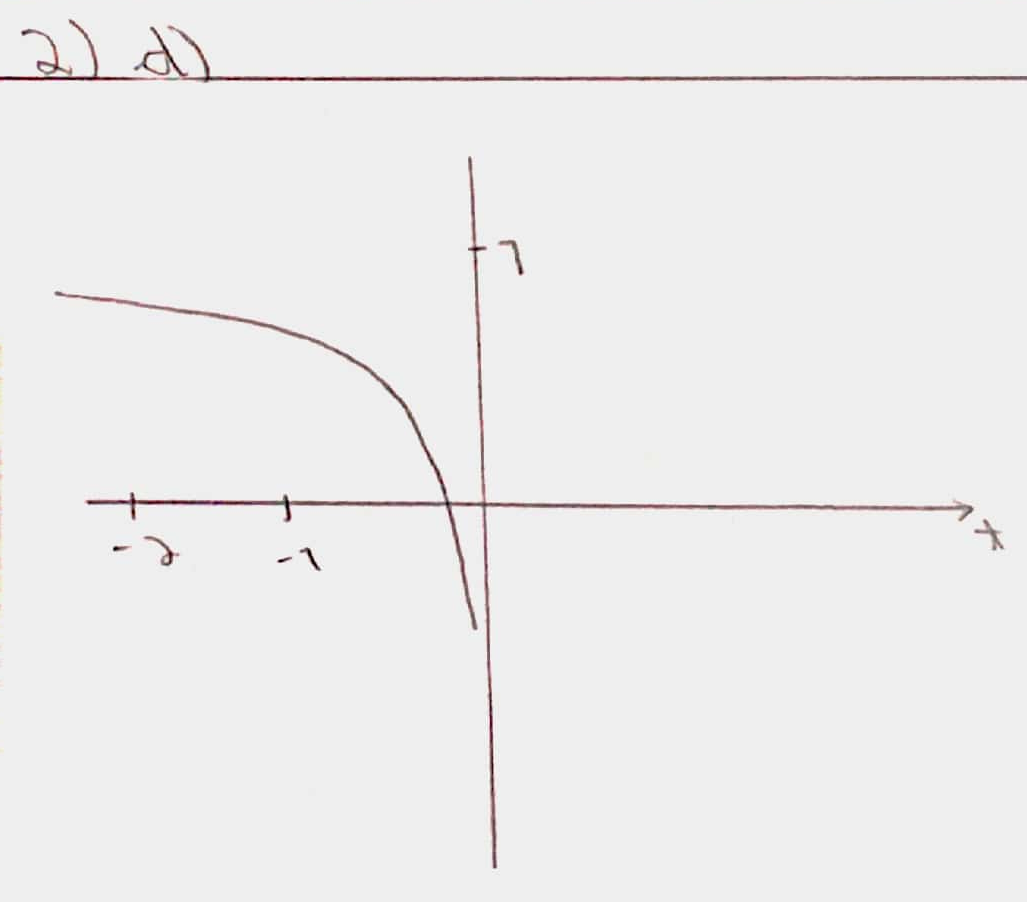 2) d)
1
-2 -1 x